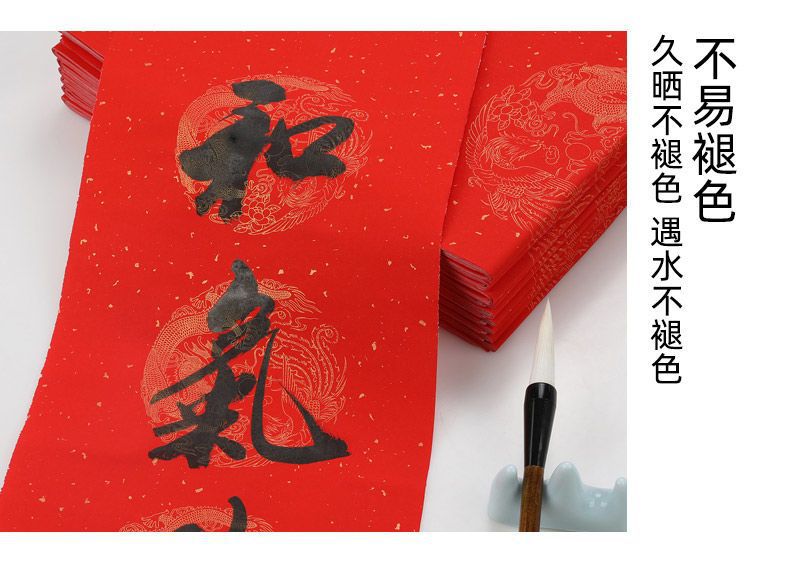 不易褪色
久晒不褪色 遇水不褪色
和
氣